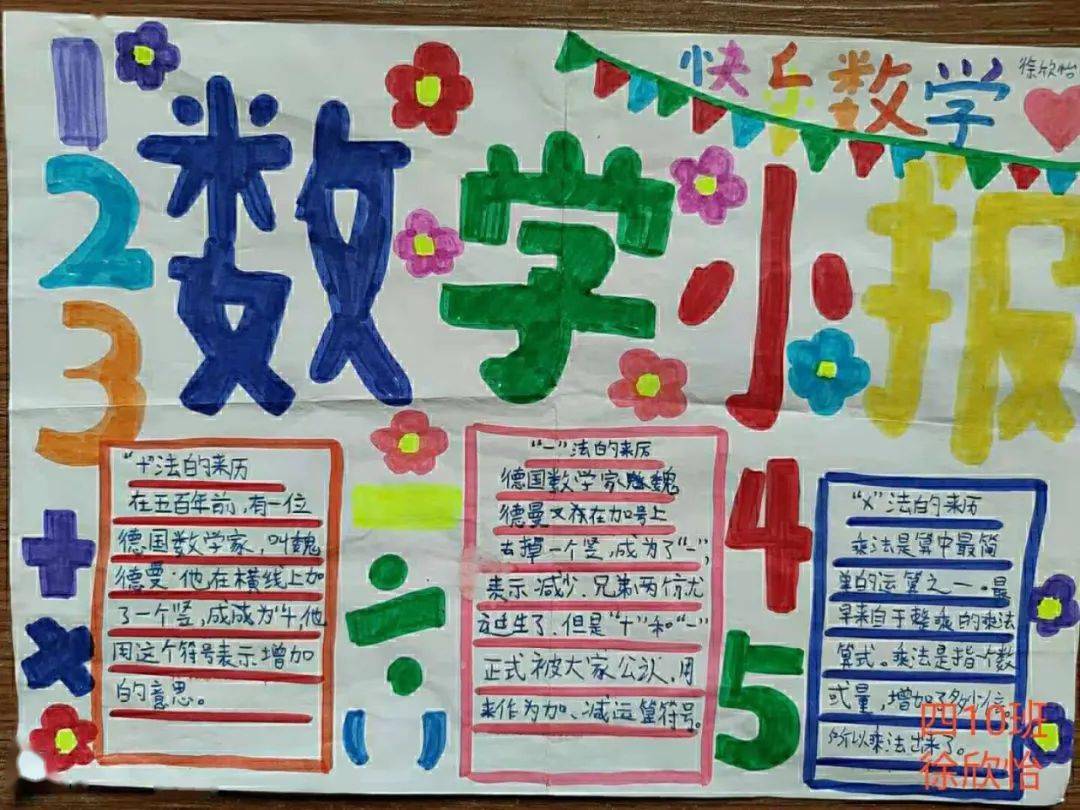 快乐数学
徐欣怡
数学小报
1
2
3
+
×
“+”法的来历
在五百年前,有一位
德国数学家,叫魏
德曼.他在横线上加
了一个竖,成成为“+,他
用这个符号表示增加
的意思。
－
÷
( )
“－”法的来历
德国数学家魏
德曼又在加号上
去掉一个竖,成为了“－”,
表示减少.兄弟两个就
诞生了.但是“+”和“－”
正式被大家公认,用
来作为加、减运算符号。
4
5
“×”法的来历
乘法是算中最简
单的运算之一.最
早来自于整乘的乘法
算式。乘法是指个数
或量,增加了多少倍。
所以乘法出来了。
四10班
徐欣怡